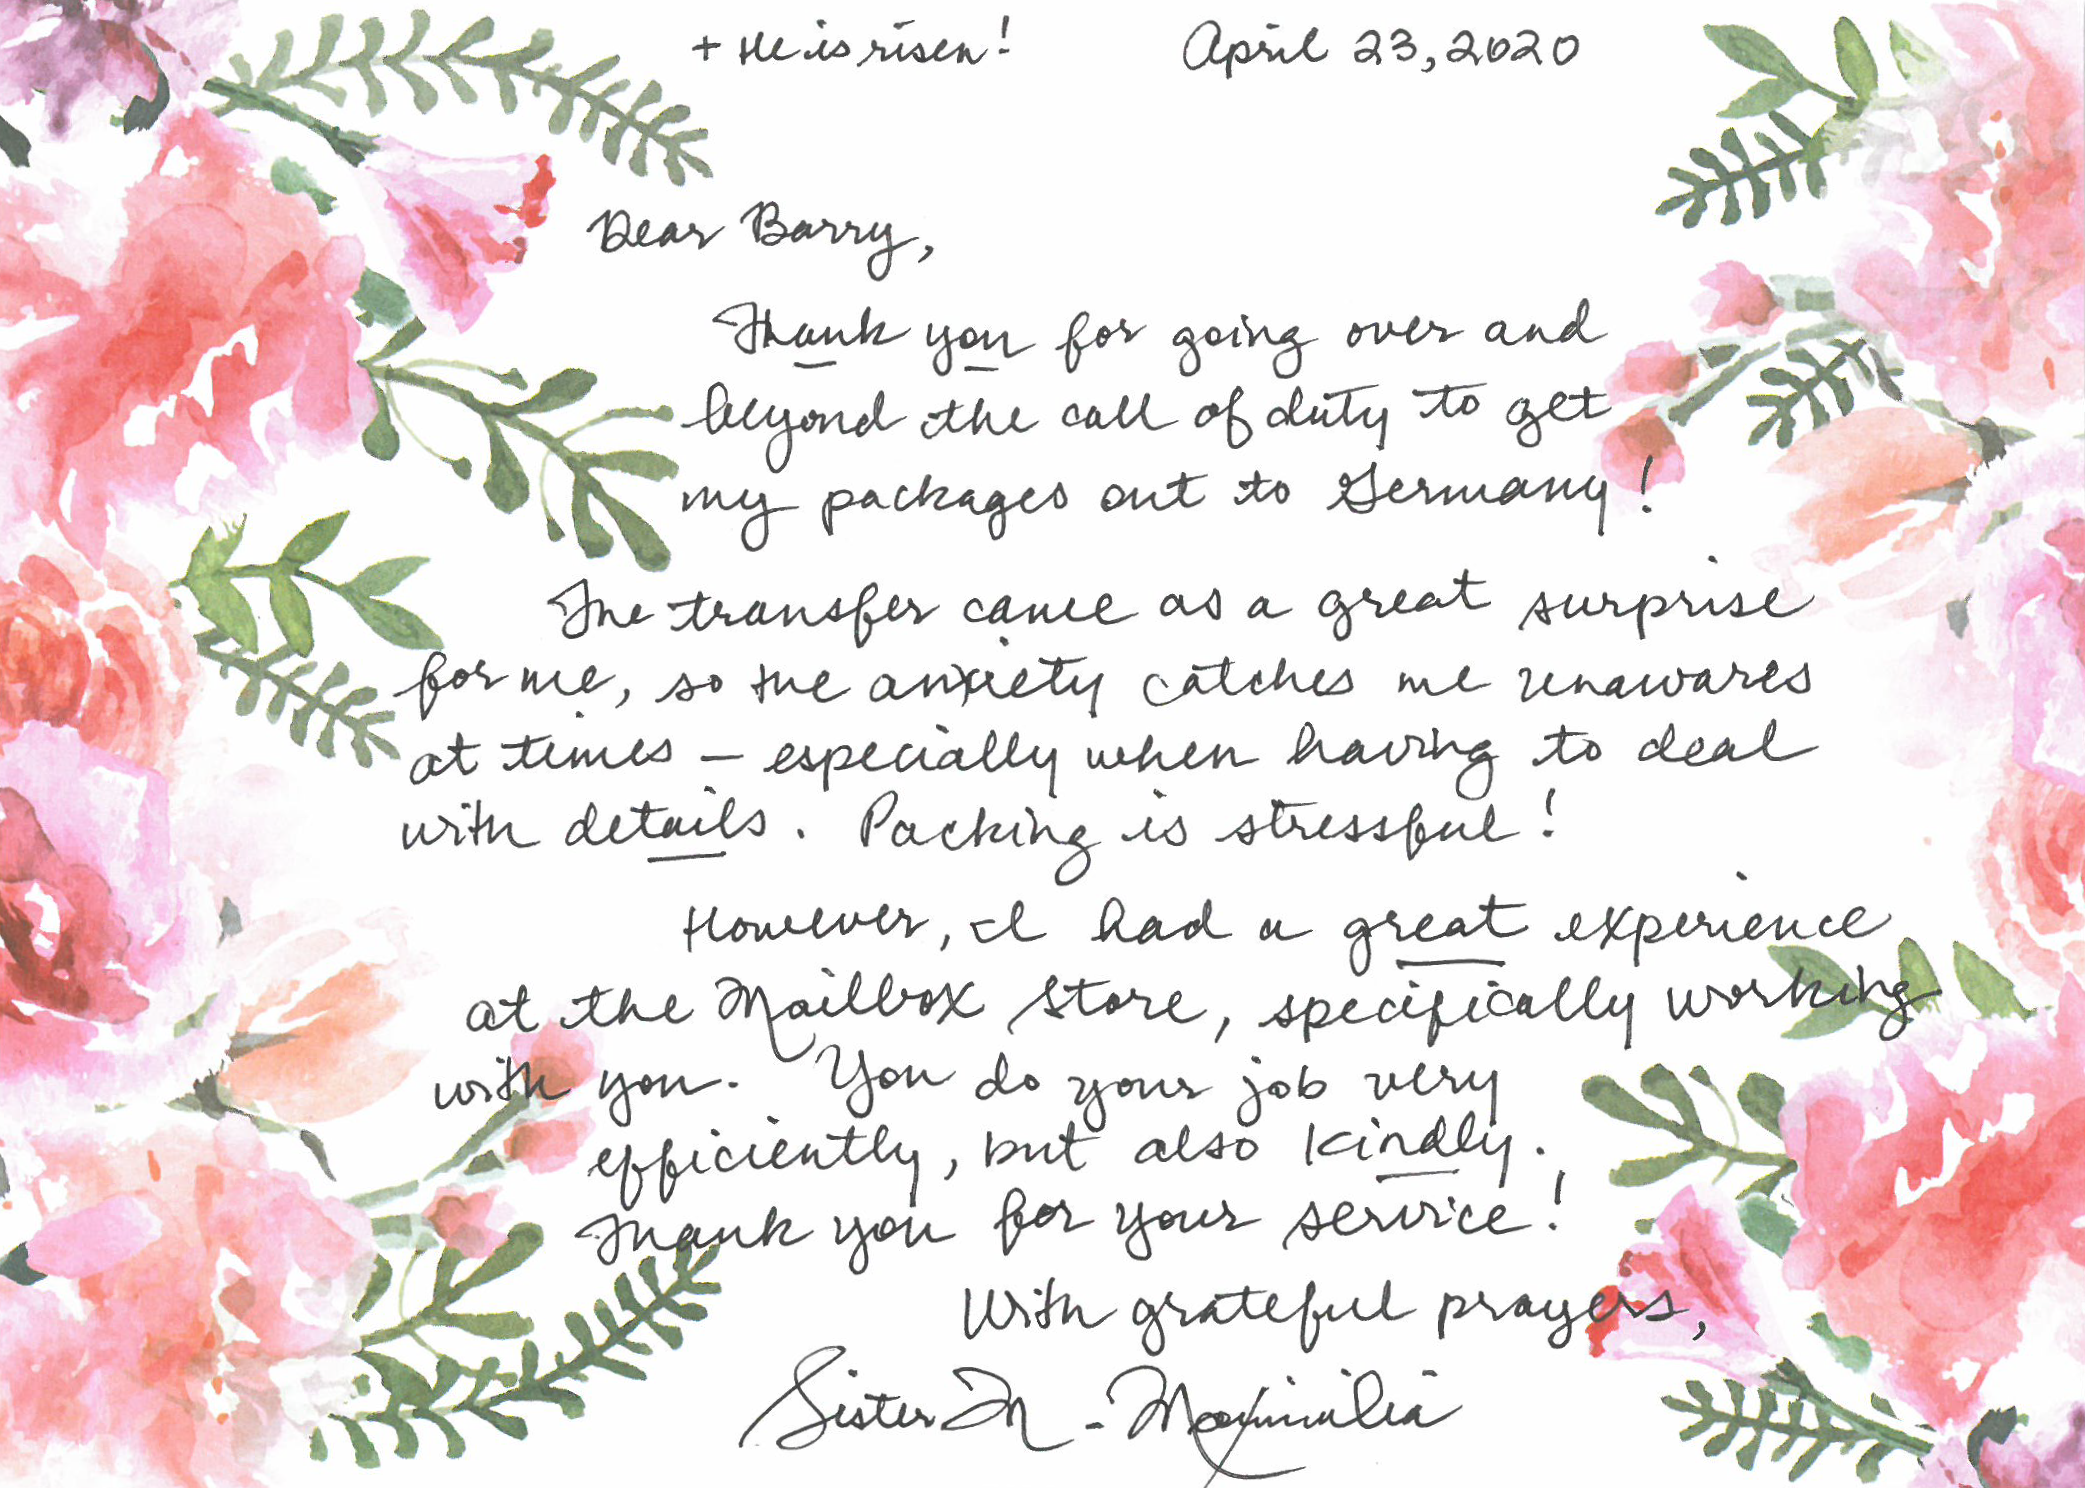 + He is risen! April 23, 2020
Dear Barry,
Thank you for going over and
beyond the call of duty to get
my packages out to Germany!
The transfer came as a great surprise
for me, so the anxiety catches me unawares
at times – especially when having to deal
with details. Packing is stressful!
However, I had a great experience
at the Mailbox Store, specifically working
with you. You do your job very
efficiently, but also kindly.
Thank you for your service!
With grateful prayers,
Sister M. Maximilia